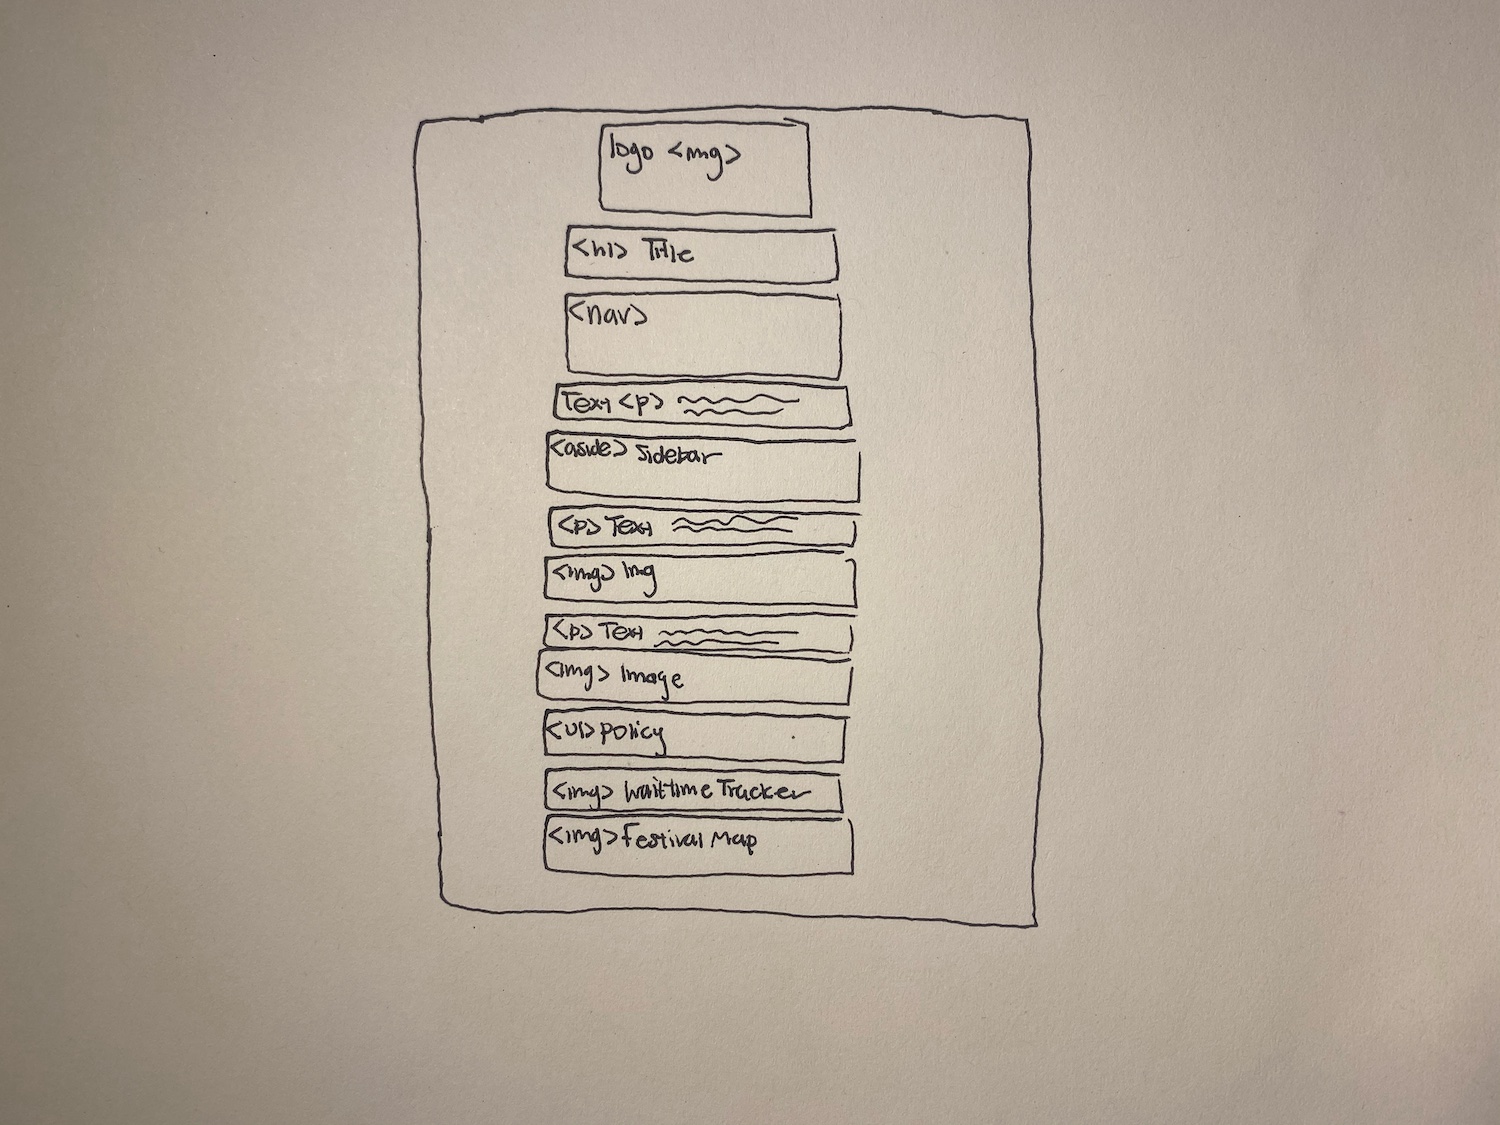 logo <img>
<h1> Title
<nav>
Text <p>
<aside> Sidebar
<p> Text
<img> Img
<p> Text
<img> Image
<ul> policy
<img> waittime Tracker
<img> Festival Map